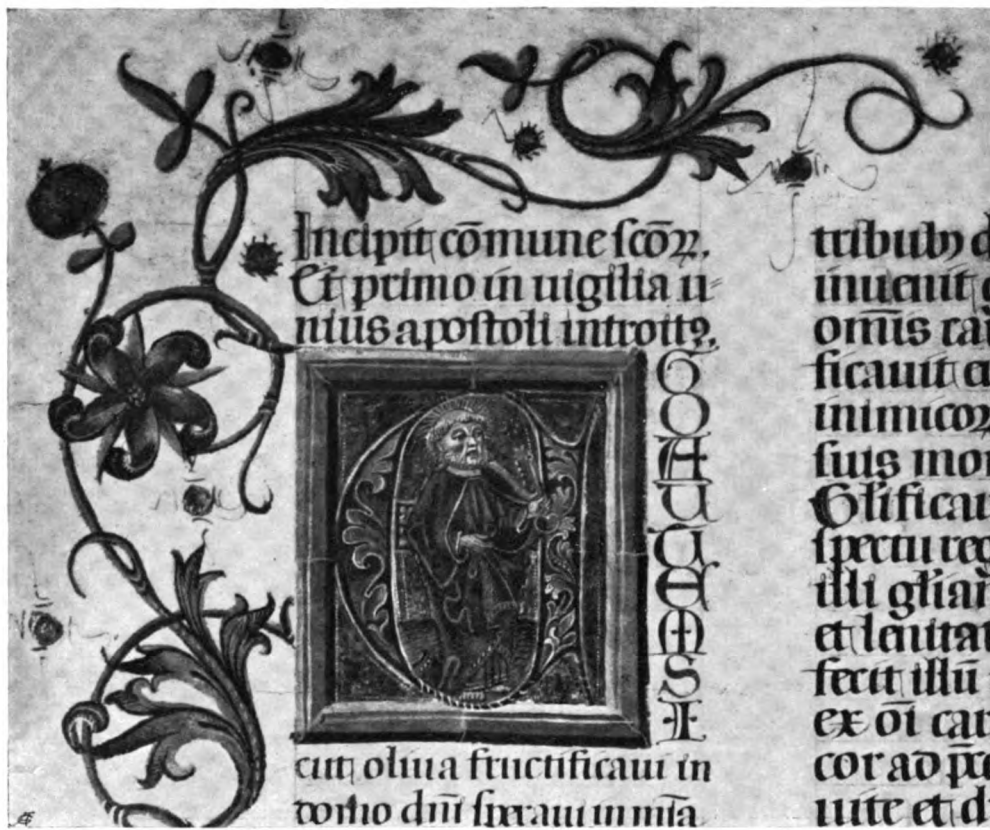 Incipit cōmune scōꝝ.
Et primo in uigilia u-
nius apostoli introitꝯ.
E
G
O
A
U
T
E
M
S
I
cut oliua fructificaui in
domo dñi speraui in mīa
tribubꝫ
inuenit
omīs
ficauit
inimicoꝝ
suis
Glificau
spectu reg
illi gliam
et lenitat
fecit illū
ex oī car
cor ad
uite et d